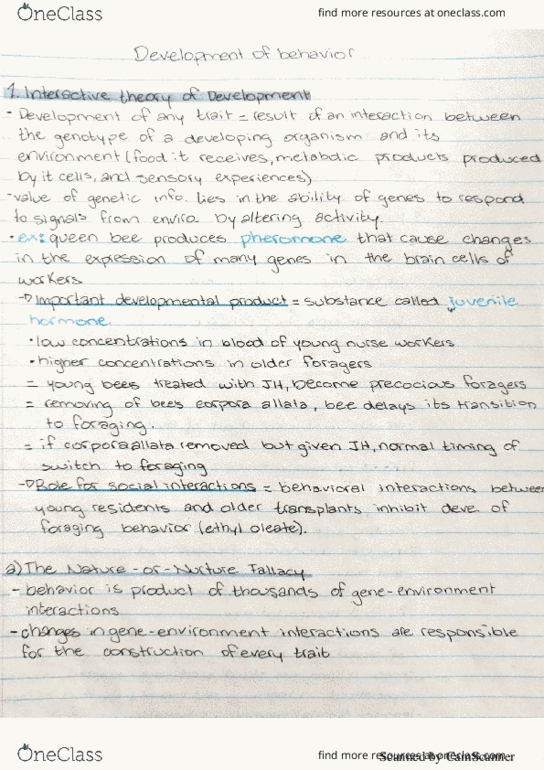 OneClass
find more resources at oneclass.com
Development of behavior
1. Interactive theory of Development
- Development of any trait = result of an interaction between
the genotype of a developing organism and its
environment (food it receives, metabolic products produced
by it cells, and sensory experiences)
- value of genetic info. lies in the ability of genes to respond
to signals from enviro. by altering activity.
• ex: queen bee produces pheromone that cause changes
in the expression of many genes in the brain cells of
workers
→ Important developmental product = substance called juvenile
hormone.
• low concentrations in blood of young nurse workers
• higher concentrations in older foragers
= young bees treated with JH, become precocious foragers
= removing of bees corpora allata, bee delays its transition
to foraging.
= if corpora allata removed but given JH, normal timing of
switch to foraging
→ Role for social interactions = behavioral interactions between
young residents and older transplants inhibit deve. of
foraging behavior (ethyl oleate).
a) The Nature-or-Nurture Fallacy
- behavior is product of thousands of gene-environment
interactions
- changes in gene-environment interactions are responsible
for the construction of every trait
OneClass
find more resources at oneclass.com
Scanned by CamScanner